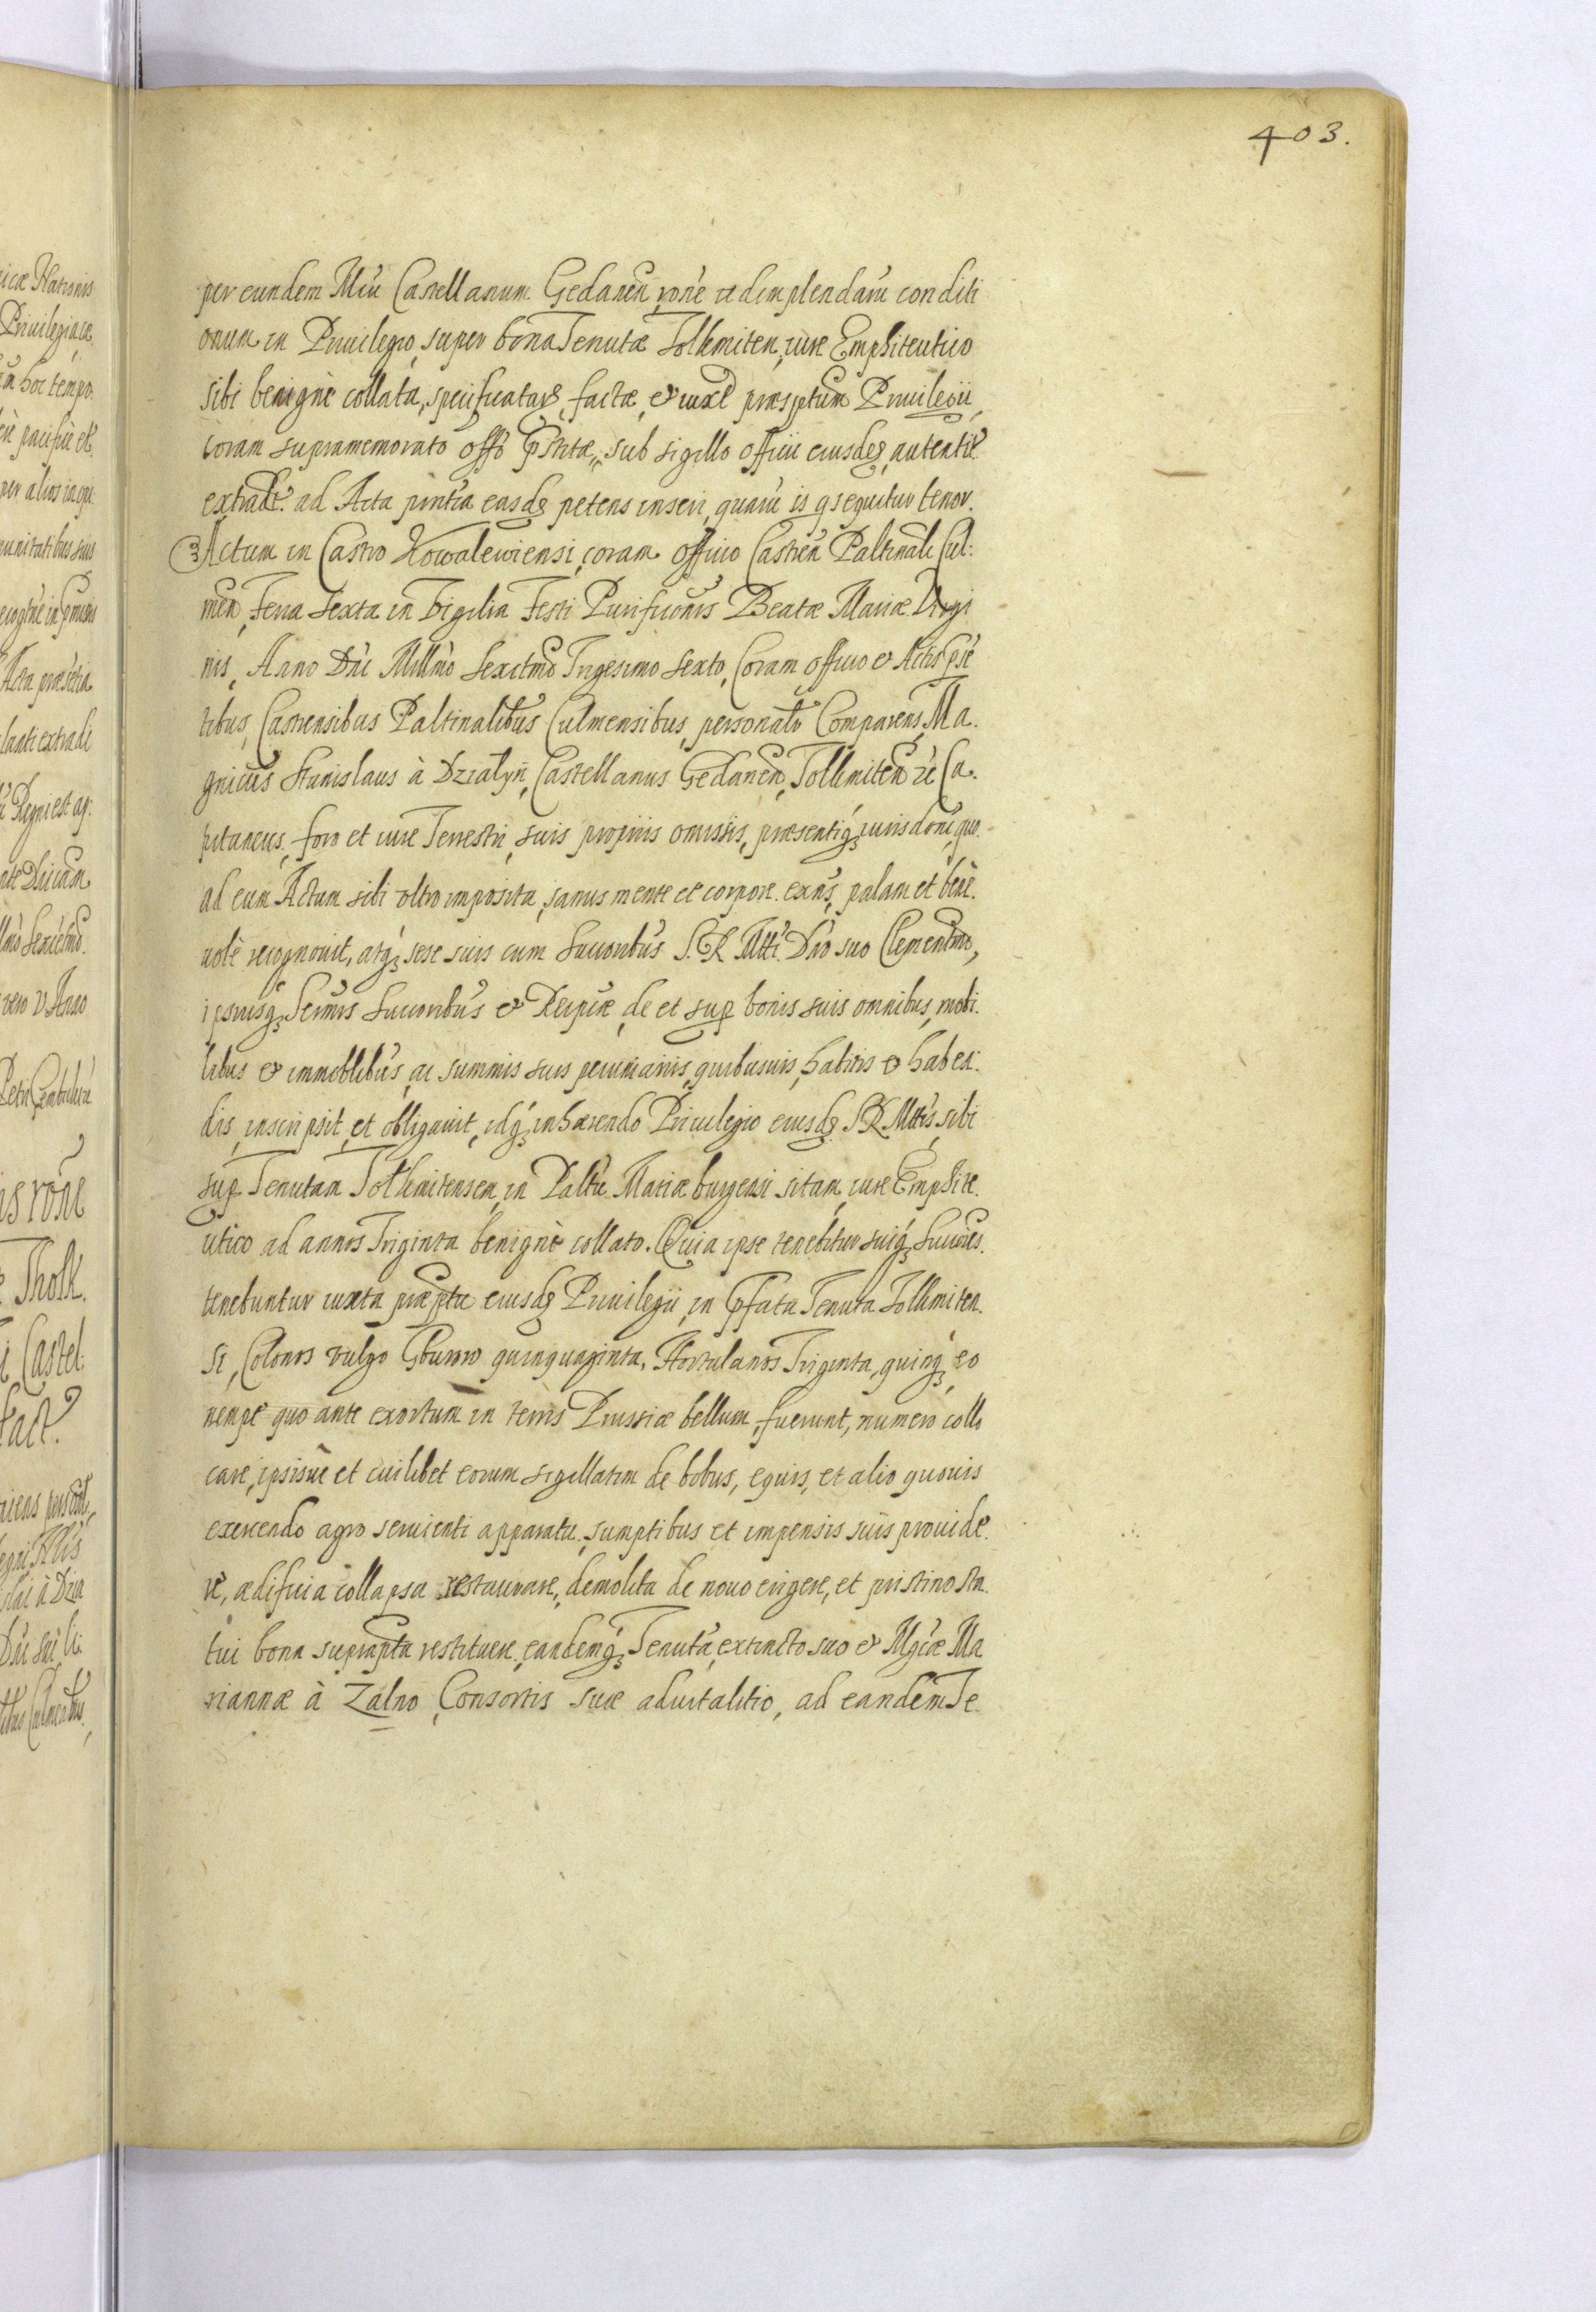 403.
per eundem Mcũ Castellanum Gedanen̄ rone adimplendarũ conditi
onum in Priuilegio, super bona Tenutæ Tolkmiten, iure Emphiteutico
sibi benignè collata, specificatarȩ factæ, et iuxta præscriptum Priuilegii,
coram supramemorato offo pstitæ, sub sigillo officii eiusdȩ, autentice
extradt. ad Acta pñtia easdȩ petens inseri, quarũ is qsequitur tenor.
Actum in Castro Kowalewiensi, coram officio Castren̄ Paltinali Cul:
men̄, Feria Sexta in Vigilia Festi Purificonis Beatæ Mariæ Virgi
nis, Anno Dni Millmo Sexctmo Trigesimo Sexto, Coram officio et Actis psẽ
tibus, Castrensibus Paltinalibus Culmensibus, personalr Comparens, Ma.
gnicus Stanislaus à Dzialyn̄, Castellanus Gedanen̄, Tolkmiten̄ ꝛc̄ Ca.
pitaneus, foro et iure Terrestri, suis propriis omissis, præsentiq́ȝ iurisdoni, quo
ad eum Actum sibi vltro imposita, sanus mente et corpore. exñs, palam et bene.
uolè recognouit, atq́ȝ sese suis cum Succoribus S. R. Mtti. Dño suo Clementmo,
ipsiusq́ȝ Sermis Succoribus et Reipcæ, de et sup bonis suis omnibus, mobi.
libus et immobilibus, ac summis suis pecuniariis, quibusuis, habitis et haben:
dis, inscripsit, et obligauit, idq́ȝ inhærendo Priuilegio eiusdȩ S R Mttis, sibi
sup Tenutam Tolkmitensem, in Paltũ Mariæburgensi sitam, iure Emphite.
utico ad annos Triginta benignè collato. Quia ipse tenebitur suiq́ȝ Succores.
tenebuntur iuxta præsptũ eiusdȩ Priuilegii, in pfata Tenuta Tolkmiten.
si, Colonos vulgo Gburow quinquaginta, Hortulanos Triginta, quinq́ȝ, eo
nempè quo ante exortum in terris Prussiæ bellum, fuerunt, numero collo
care, ipsisue et cuilibet eorum sigillatim de bobus, equis, et alio quouis
exercendo agro seruienti apparatu, sumptibus et impensis suis prouide.
re, ædificia collapsa restaurare, demolita de nouo erigere, et pristino sta.
tui bona suprapta restituere, eandemq́ȝ Tenutã, extincto suo et Mgcæ Ma
riannæ à Zalno, Consortis suæ aduitalitio, ad eandem Te.